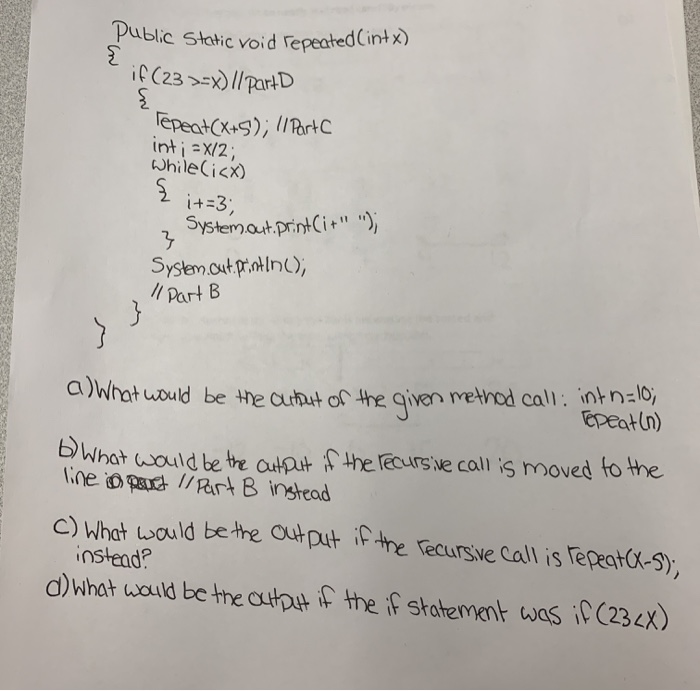 Public static void repeated(int x)
{
if(23 >=x)//PartD
{
repeat(x+5); //PartC
int i =x/2;
while(i<x)
{
i+=3;
System.out.print(i+" ");
}
System.out.println();
// Part B
}
}
a) What would be the output of the given method call: int n=10;
repeat(n)
b) What would be the output if the recursive call is moved to the
line // Part B instead
c) What would be the output if the recursive call is repeat(x-5);
instead?
d) What would be the output if the if statement was if (23<x)